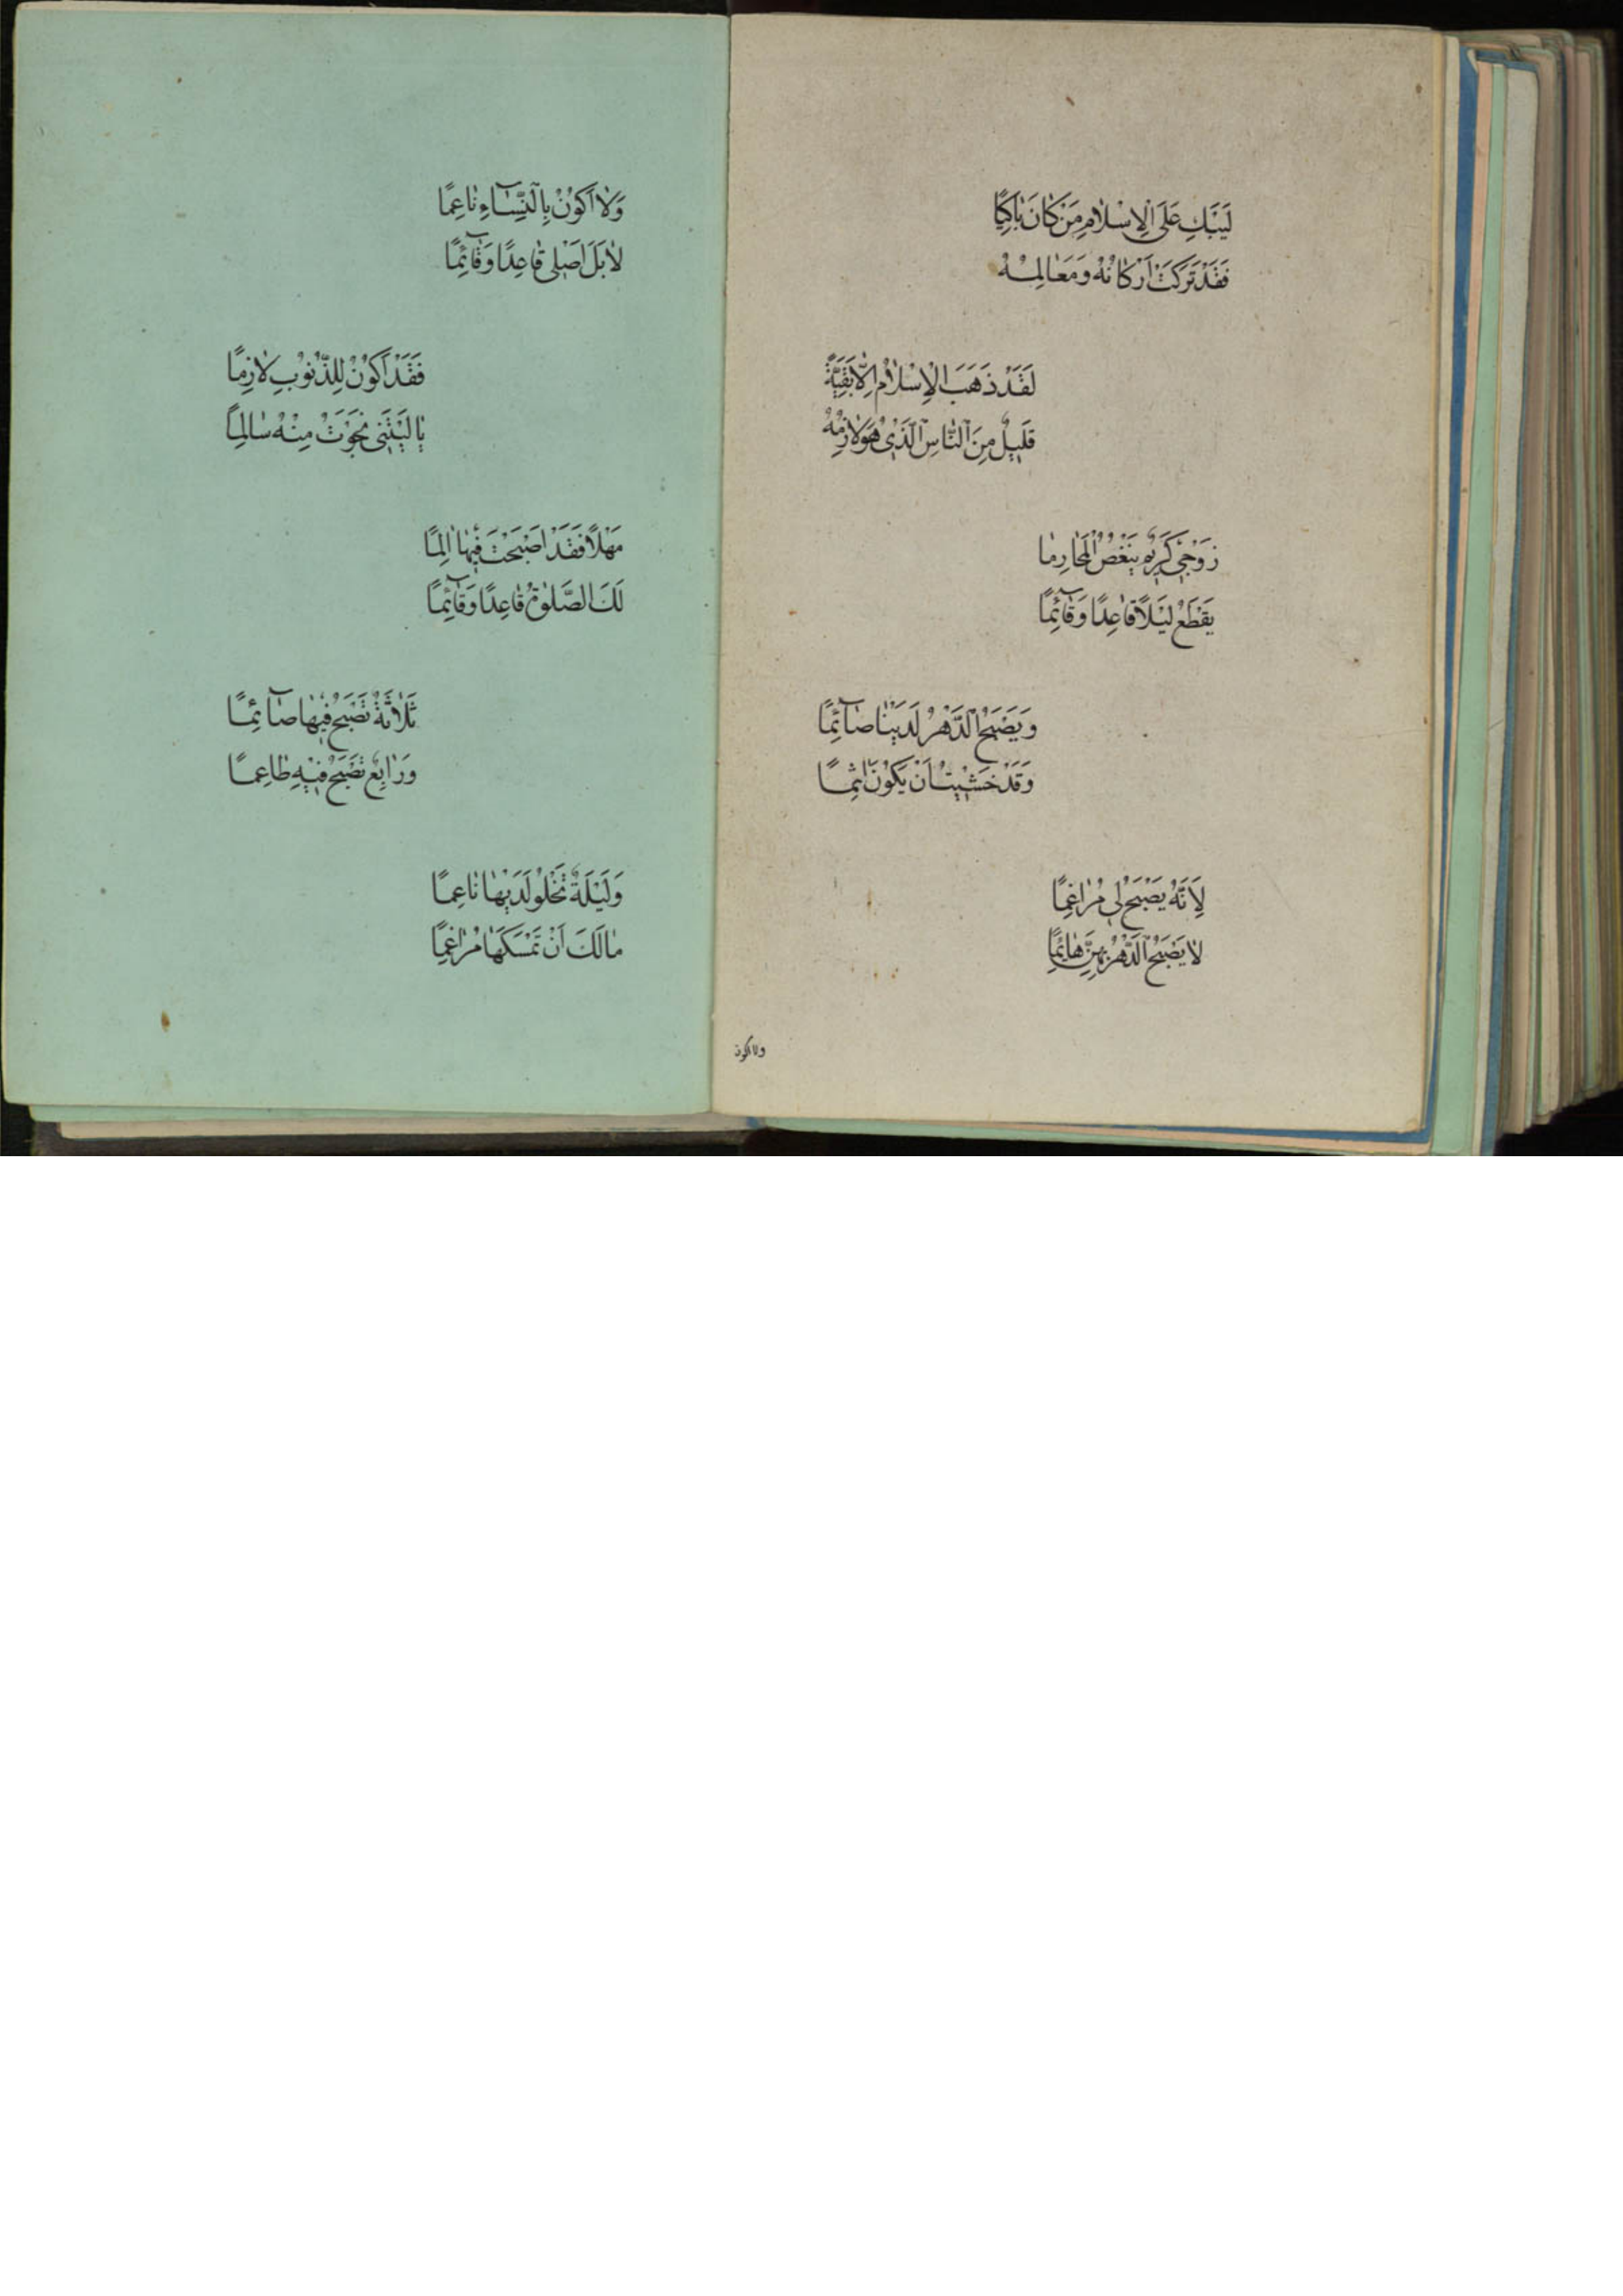 لَيَبْكِ عَلَى الْاِسْلَامِ مَنْ كَانَ بَاكِيًا
فَقَدْ تَرَكَتْ اَرْكَانُهُ وَمَعَالِمُهْ
لَقَدْ ذَهَبَ الْاِسْلَامُ اِلَّا بَقِيَّةً
قَلِيلٌ مِنَ النَّاسِ الَّذِي هُوَ لَازِمُهُ
زَوْجِي كَرِيمٌ يَبْغُضُ الْمَحَارِمَا
يَقْطَعُ لَيْلًا قَاعِدًا وَقَآئِمًا
وَيَصْبَحُ الدَّهْرُ لَدَيْنَا صَآئِمًا
وَقَدْ خَشِيتُ اَنْ يَكُونَ اٰثِمًا
لِاَنَّهُ يَصْبَحُ لِي مُرَاغِمًا
لَا يَصْبَحُ الدَّهْرُ بِهِنَّ هَائِمًا
ولا اكون
وَلَا اَكُونُ بِالنِّسَآءِ نَاعِمًا
لَا بَلْ اَصَلِي قَاعِدًا وَقَآئِمًا
فَقَدْ اَكُونُ لِلذُّنُوبِ لَازِمًا
يَا لَيْتَنِي نَجَوْتُ مِنْهُ سَالِمًا
مَهْلًا فَقَدْ اَصْبَحْتَ فِيهَا اٰلِمًا
لَكَ الصَّلٰوةُ قَاعِدًا وَقَآئِمًا
ثَلَاثَةٌ تَصْبَحُ فِيهَا صَآئِمًا
وَرَابِعٌ تَصْبَحُ فِيهِ طَاعِمًا
وَلَيْلَةٌ تَخْلُو لَدَيْهَا نَاعِمًا
مَا لَكَ اَنْ تَمْسَكَهَا مُرَاغِمًا